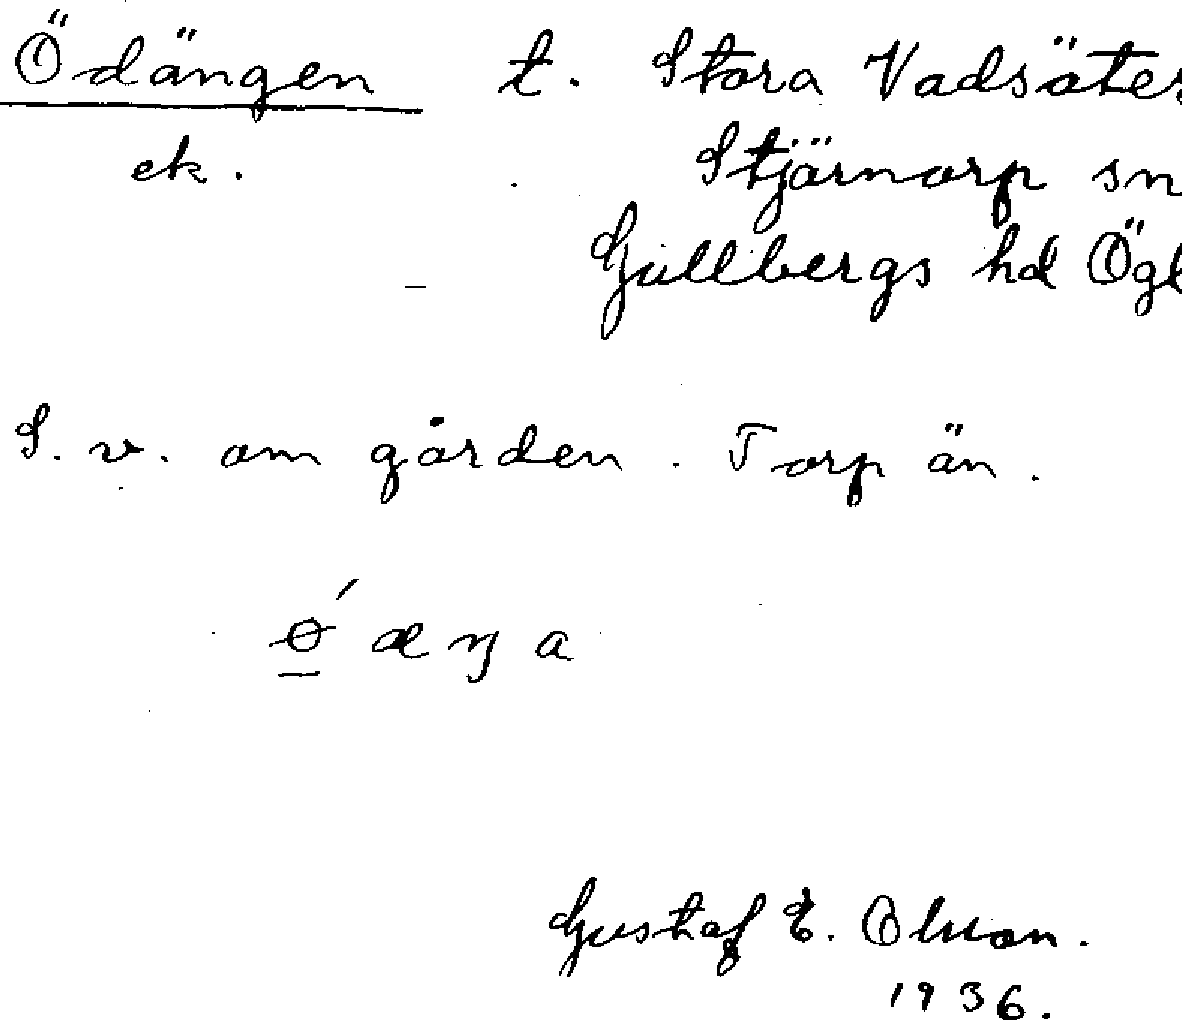 Ödängen t. Stora Vadsäter
ek. Stjärnorp sn
Gullbergs hd Ögl
S. v. om gården. Torp än.
ǿ æ ŋ a
Gustaf E. Olsson.
1936.